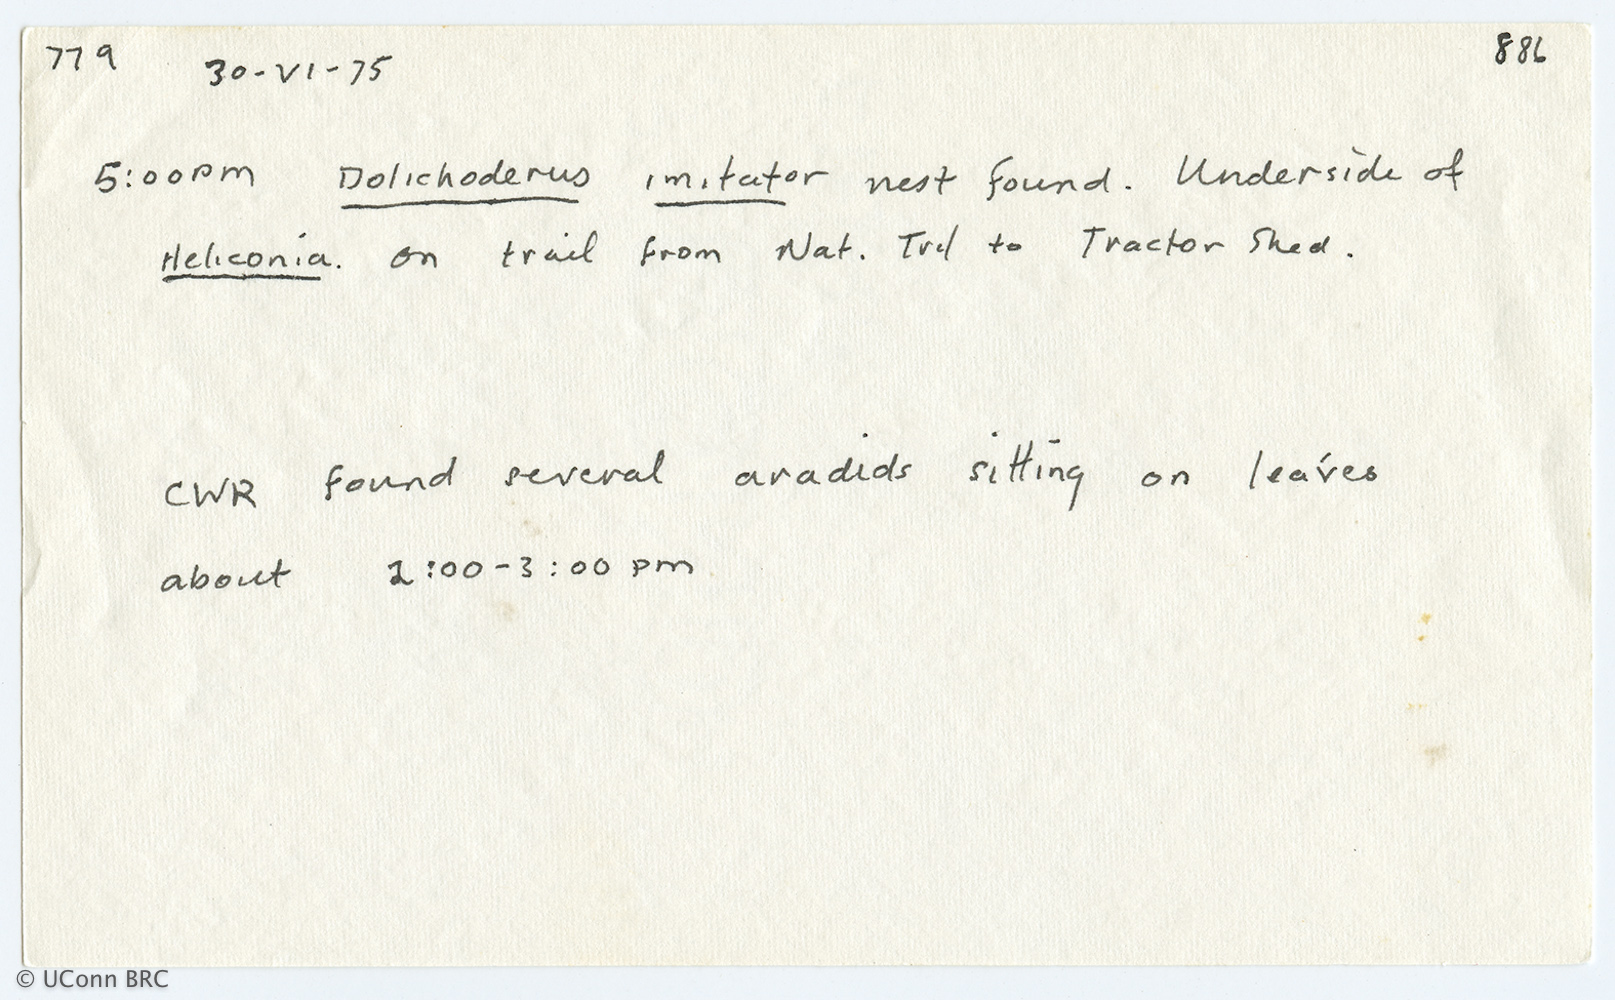 779 30-VI-75 886
5:00pm Dolichoderus imitator nest found. Underside of
Heliconia. on trail from Nat. Trl to Tractor Shed.
CWR found several aradids sitting on leaves
about 2:00-3:00 pm
© UConn BRC